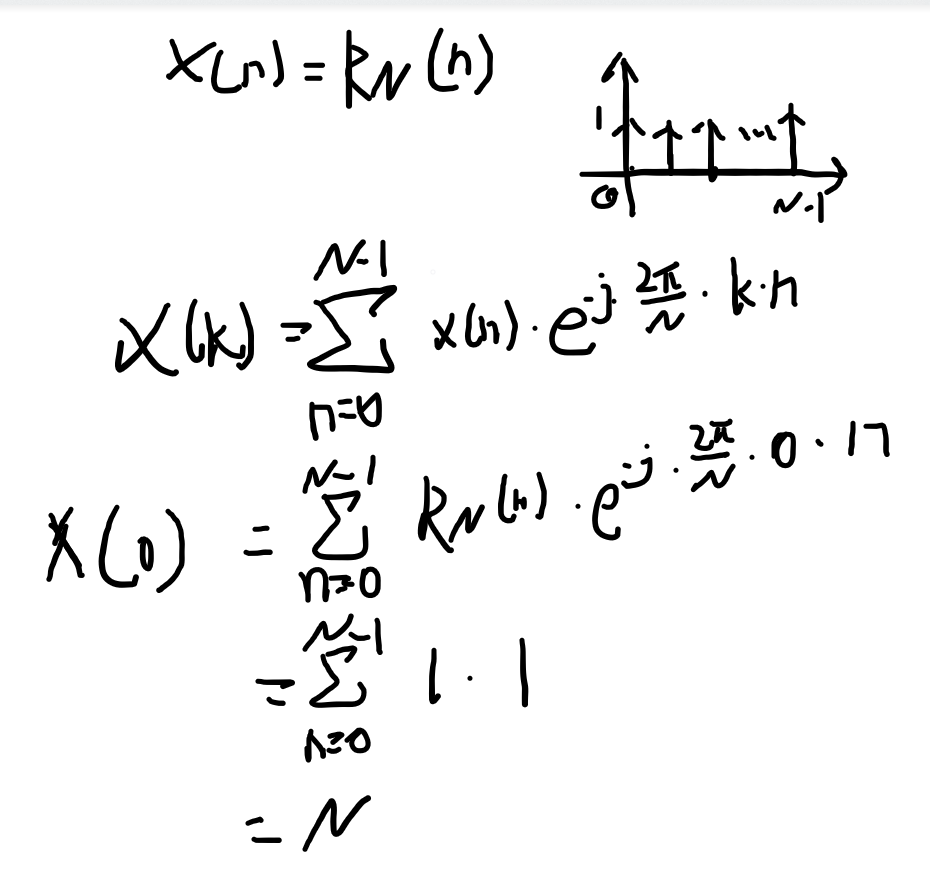 x(n) = R_N(n)
1
...
0
N-1
X(k) = \sum_{n=0}^{N-1} x(n) · e^{-j · \frac{2π}{N} · k·n}
X(0) = \sum_{n=0}^{N-1} R_N(n) · e^{-j · \frac{2π}{N} · 0 · n}
= \sum_{n=0}^{N-1} 1 · 1
= N